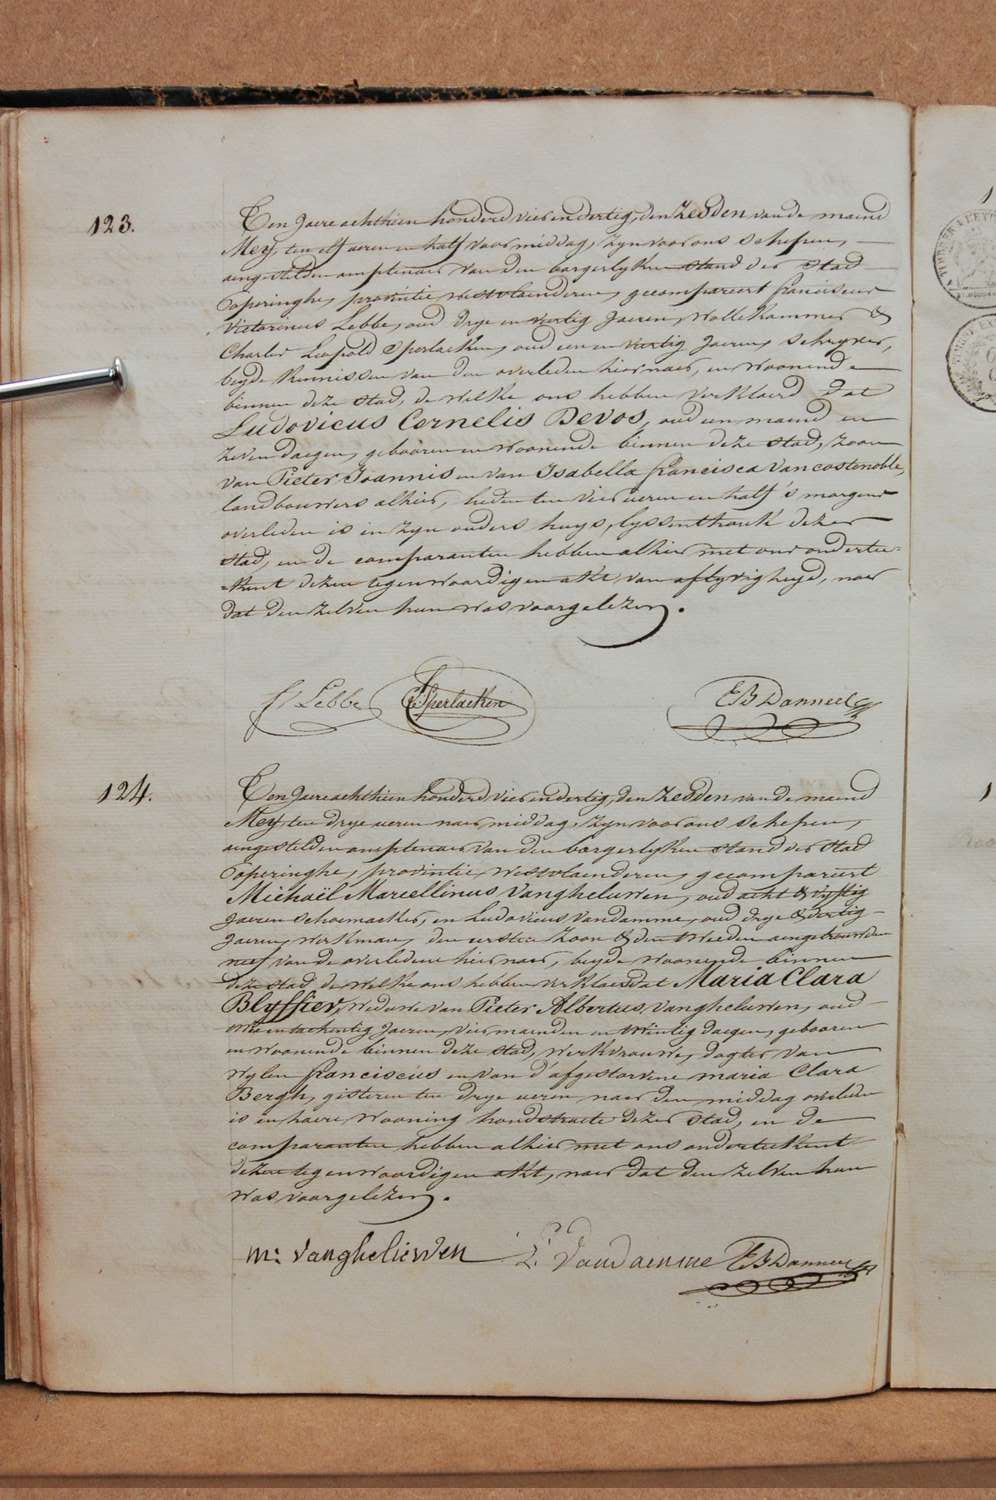 123.
Ten Jaere achthien honderd vier en dertig, den zesden van de maend
Mey, ten elf ueren en half voormiddag, zyn voor ons schepen,
aengestelden amptenaer van den borgerlyken stand der stad
Poperinghe, provintie westvlaenderen, gecompareert franciscus
Victorinus Lebbe, oud drye en veertig Jaeren, wollekammer &
Charles Leopold Sperlaeken, oud een en veertig Jaeren, schryver,
beyde kennissen van den overleden hier naer, en woonende
binnen deze stad, de welke ons hebben verklaerd dat
Ludovicus Cornelis Devos, oud een maend en
zeven daegen, gebooren en woonende binnen deze stad, zoon
van Pieter Joannis en van Isabella francisca Vancostenoble,
landbouwers alhier, heden ten vier ueren en half 's morgens
overleden is in zyn ouders huys, lyssenthoek dezer
stad, en de comparanten hebben alhier met ons ondertee-
kent dezen tegenwoordigen akt, van aflyvigheyd, naer
dat den zelven hun was voorgelezen.
f Lebbe C L Sperlaeken EB Danneel
124.
Ten Jaere achthien honderd vier en dertig, den zesden van de maend
Mey, ten drye ueren naer middag, zyn voor ons schepen,
aengestelden amptenaer van den borgerlyken stand der stad
Poperinghe, provintie, westvlaenderen, gecompareert
Michaël Marcellinus Vangheluwen, oud acht & vyftig
Jaeren schoemaeker, en Ludovicus Vandamme, oud drye & dertig
Jaeren, werkman, den eersten zoon & den tweeden aengetrouwden
neef van de overledene hier naer, beyde woonende binnen
deze stad de welke ons hebben verklaerd dat Maria Clara
Blyffier, weduwe van Pieter Albertus Vangheluwen, oud
tachentig Jaeren, vier maenden en twintig daegen, gebooren
en woonende binnen deze stad, werkvrouwe, dogter van
wylen franciscus en van d'afgestorvene maria Clara
Bergh, gisteren ten drye ueren naer den middag overleden
is en haere wooning hondstraete dezer stad, en de
comparanten hebben alhier met ons onderteekent
dezen tegenwoordigen akt, naer dat den zelven hun
was voorgelezen.
m: vangheliewen L: Vandamme EB Danneel